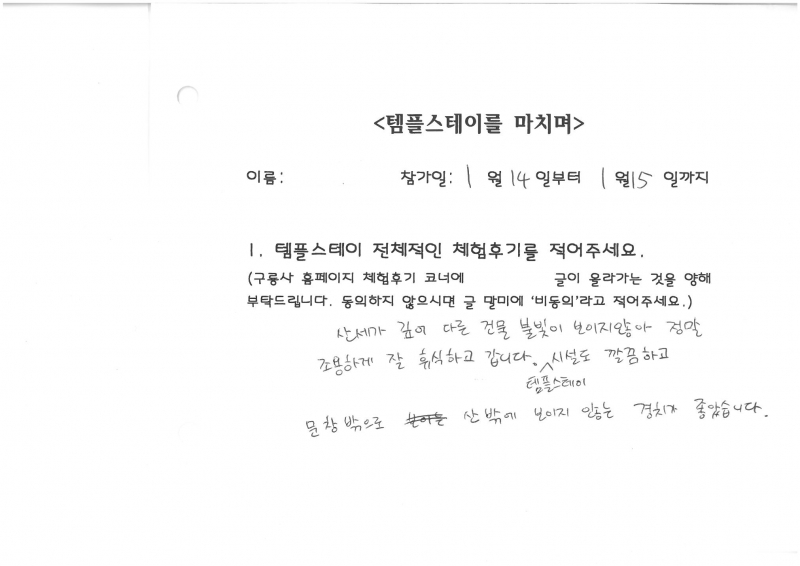 <템플스테이를 마치며>
이름: 참가일: 1 월 14 일부터 1 월 15 일까지
1. 템플스테이 전체적인 체험후기를 적어주세요.
(구룡사 홈페이지 체험후기 코너에 글이 올라가는 것을 양해
부탁드립니다. 동의하지 않으시면 글 말미에 '비동의'라고 적어주세요.)
산세가 깊어 다른 건물 불빛이 보이지않아 정말
조용하게 잘 휴식하고 갑니다. 템플스테이 시설도 깔끔하고
문창밖으로 산 밖에 보이지 않는 경치가 좋았습니다.